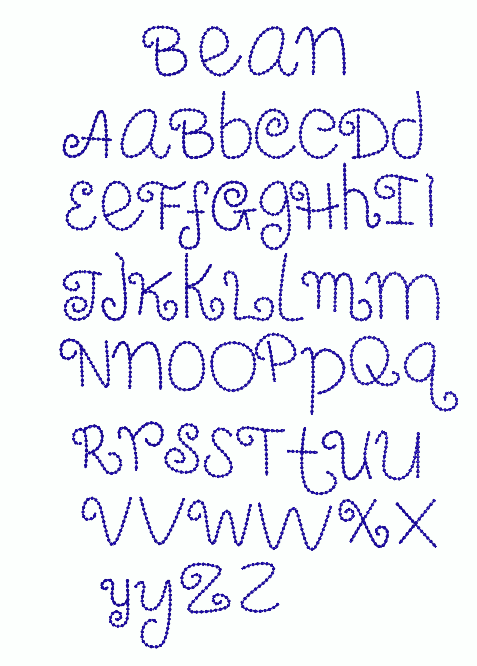 Bean
AaBbCcDd
EeFfGgHhIi
JjKkLlMm
NnOoPpQq
RrSsTtUu
VvWwXx
YyZz